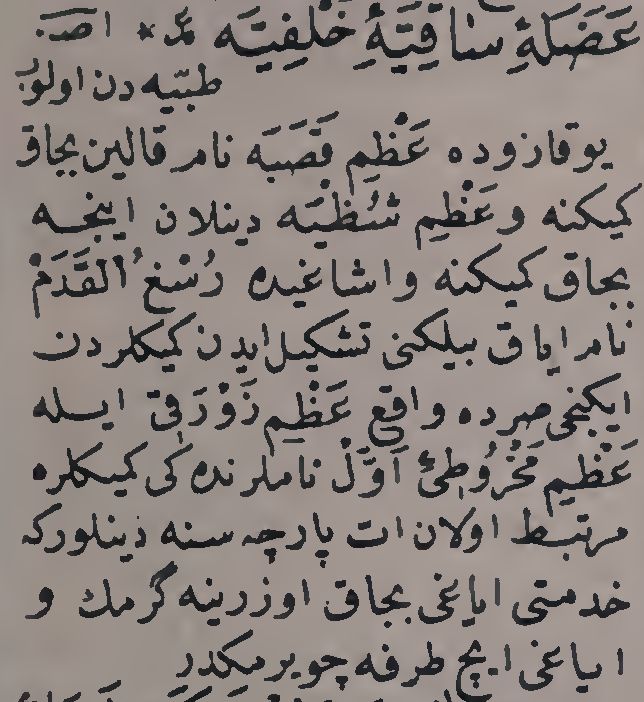 عَضَلَۀِ سٰاقِيَّۀِ خَلْفِيَّه عد * اصـ
طبّيه دن اولوب
يوقاروده عَظْمِ قَصَبَه نام قالين بجاق
كميكنه و عَظْمِ شُظْيَه دينلان اينجه
بجاق كميكنه و اشاغيده رُسْغُ الْقَدَمْ
نام اياق بيلكنى تشكيل ايدن كميكلردن
ايكنجى صره ده واقع عَظْمِ زَوْرَقى ايله
عَظْمِ مَخْرُوطِئِ اَوَّلْ ناملرنده كى كميكلره
مرتبط اولان ات پارچه سنه دينلوركه
خدمتى اياغى بجاق اوزرينه گرمك و
اياغى ايچ طرفه چويرمكدر